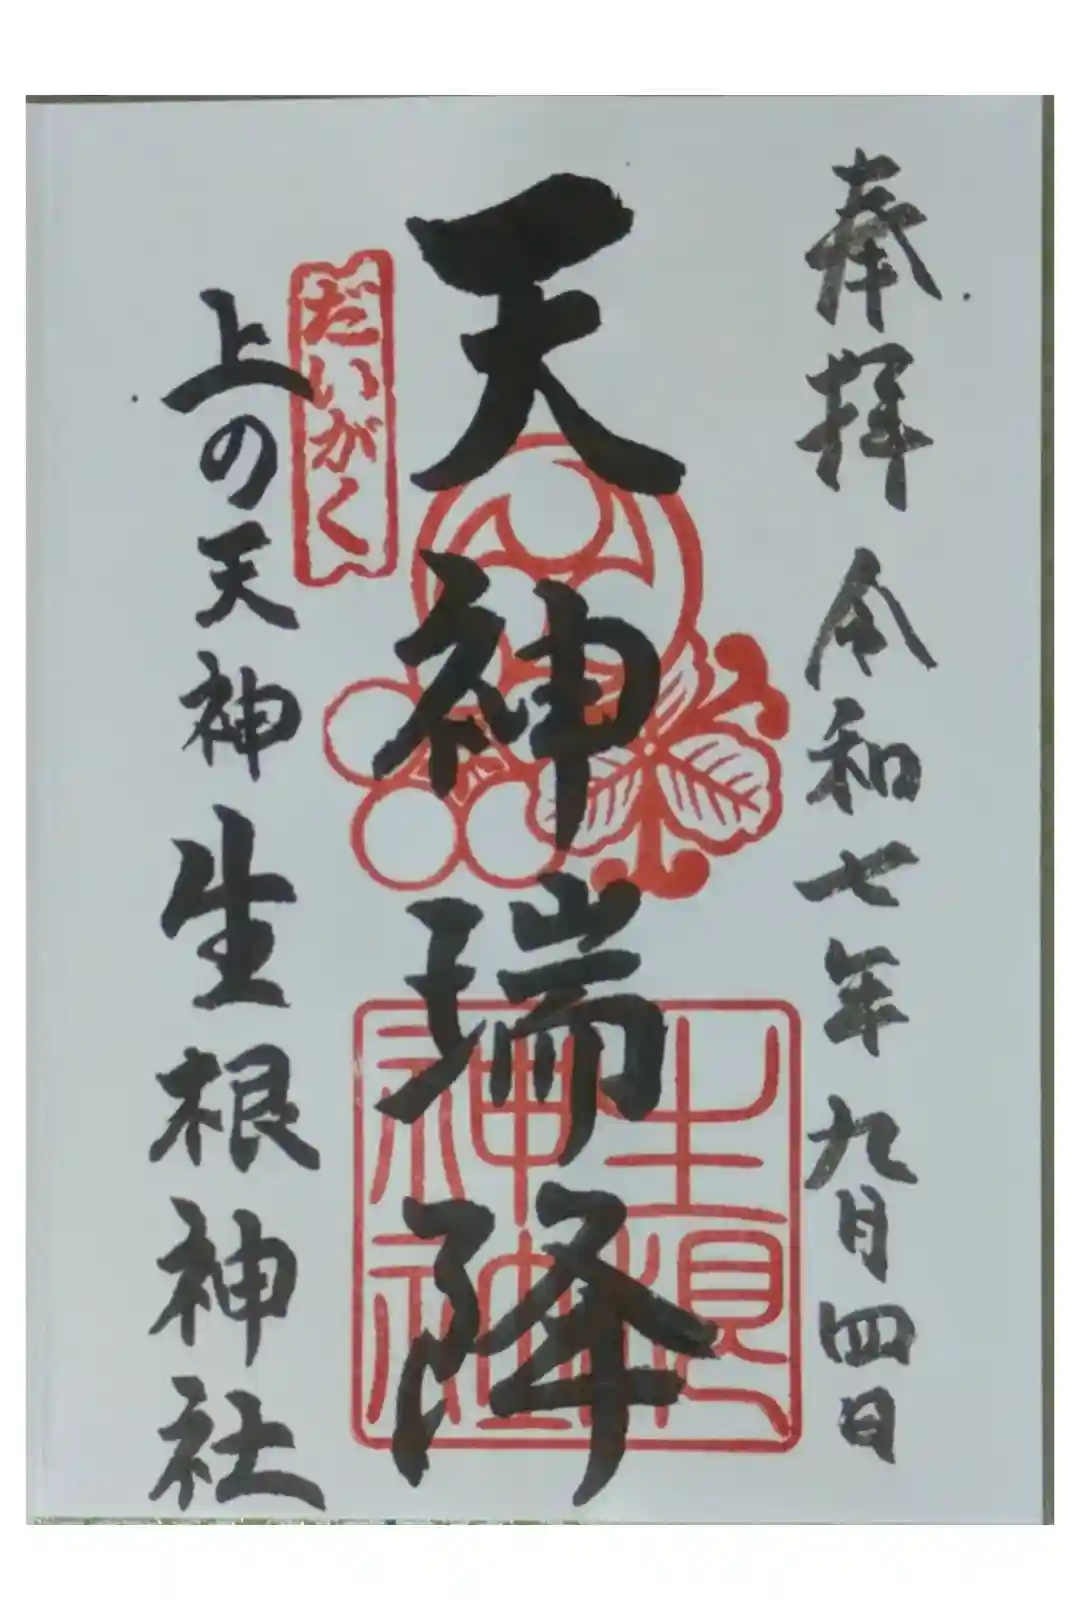 奉拝 令和七年九月四日
天神瑞降
だいがく
上の天神生根神社
生根神社